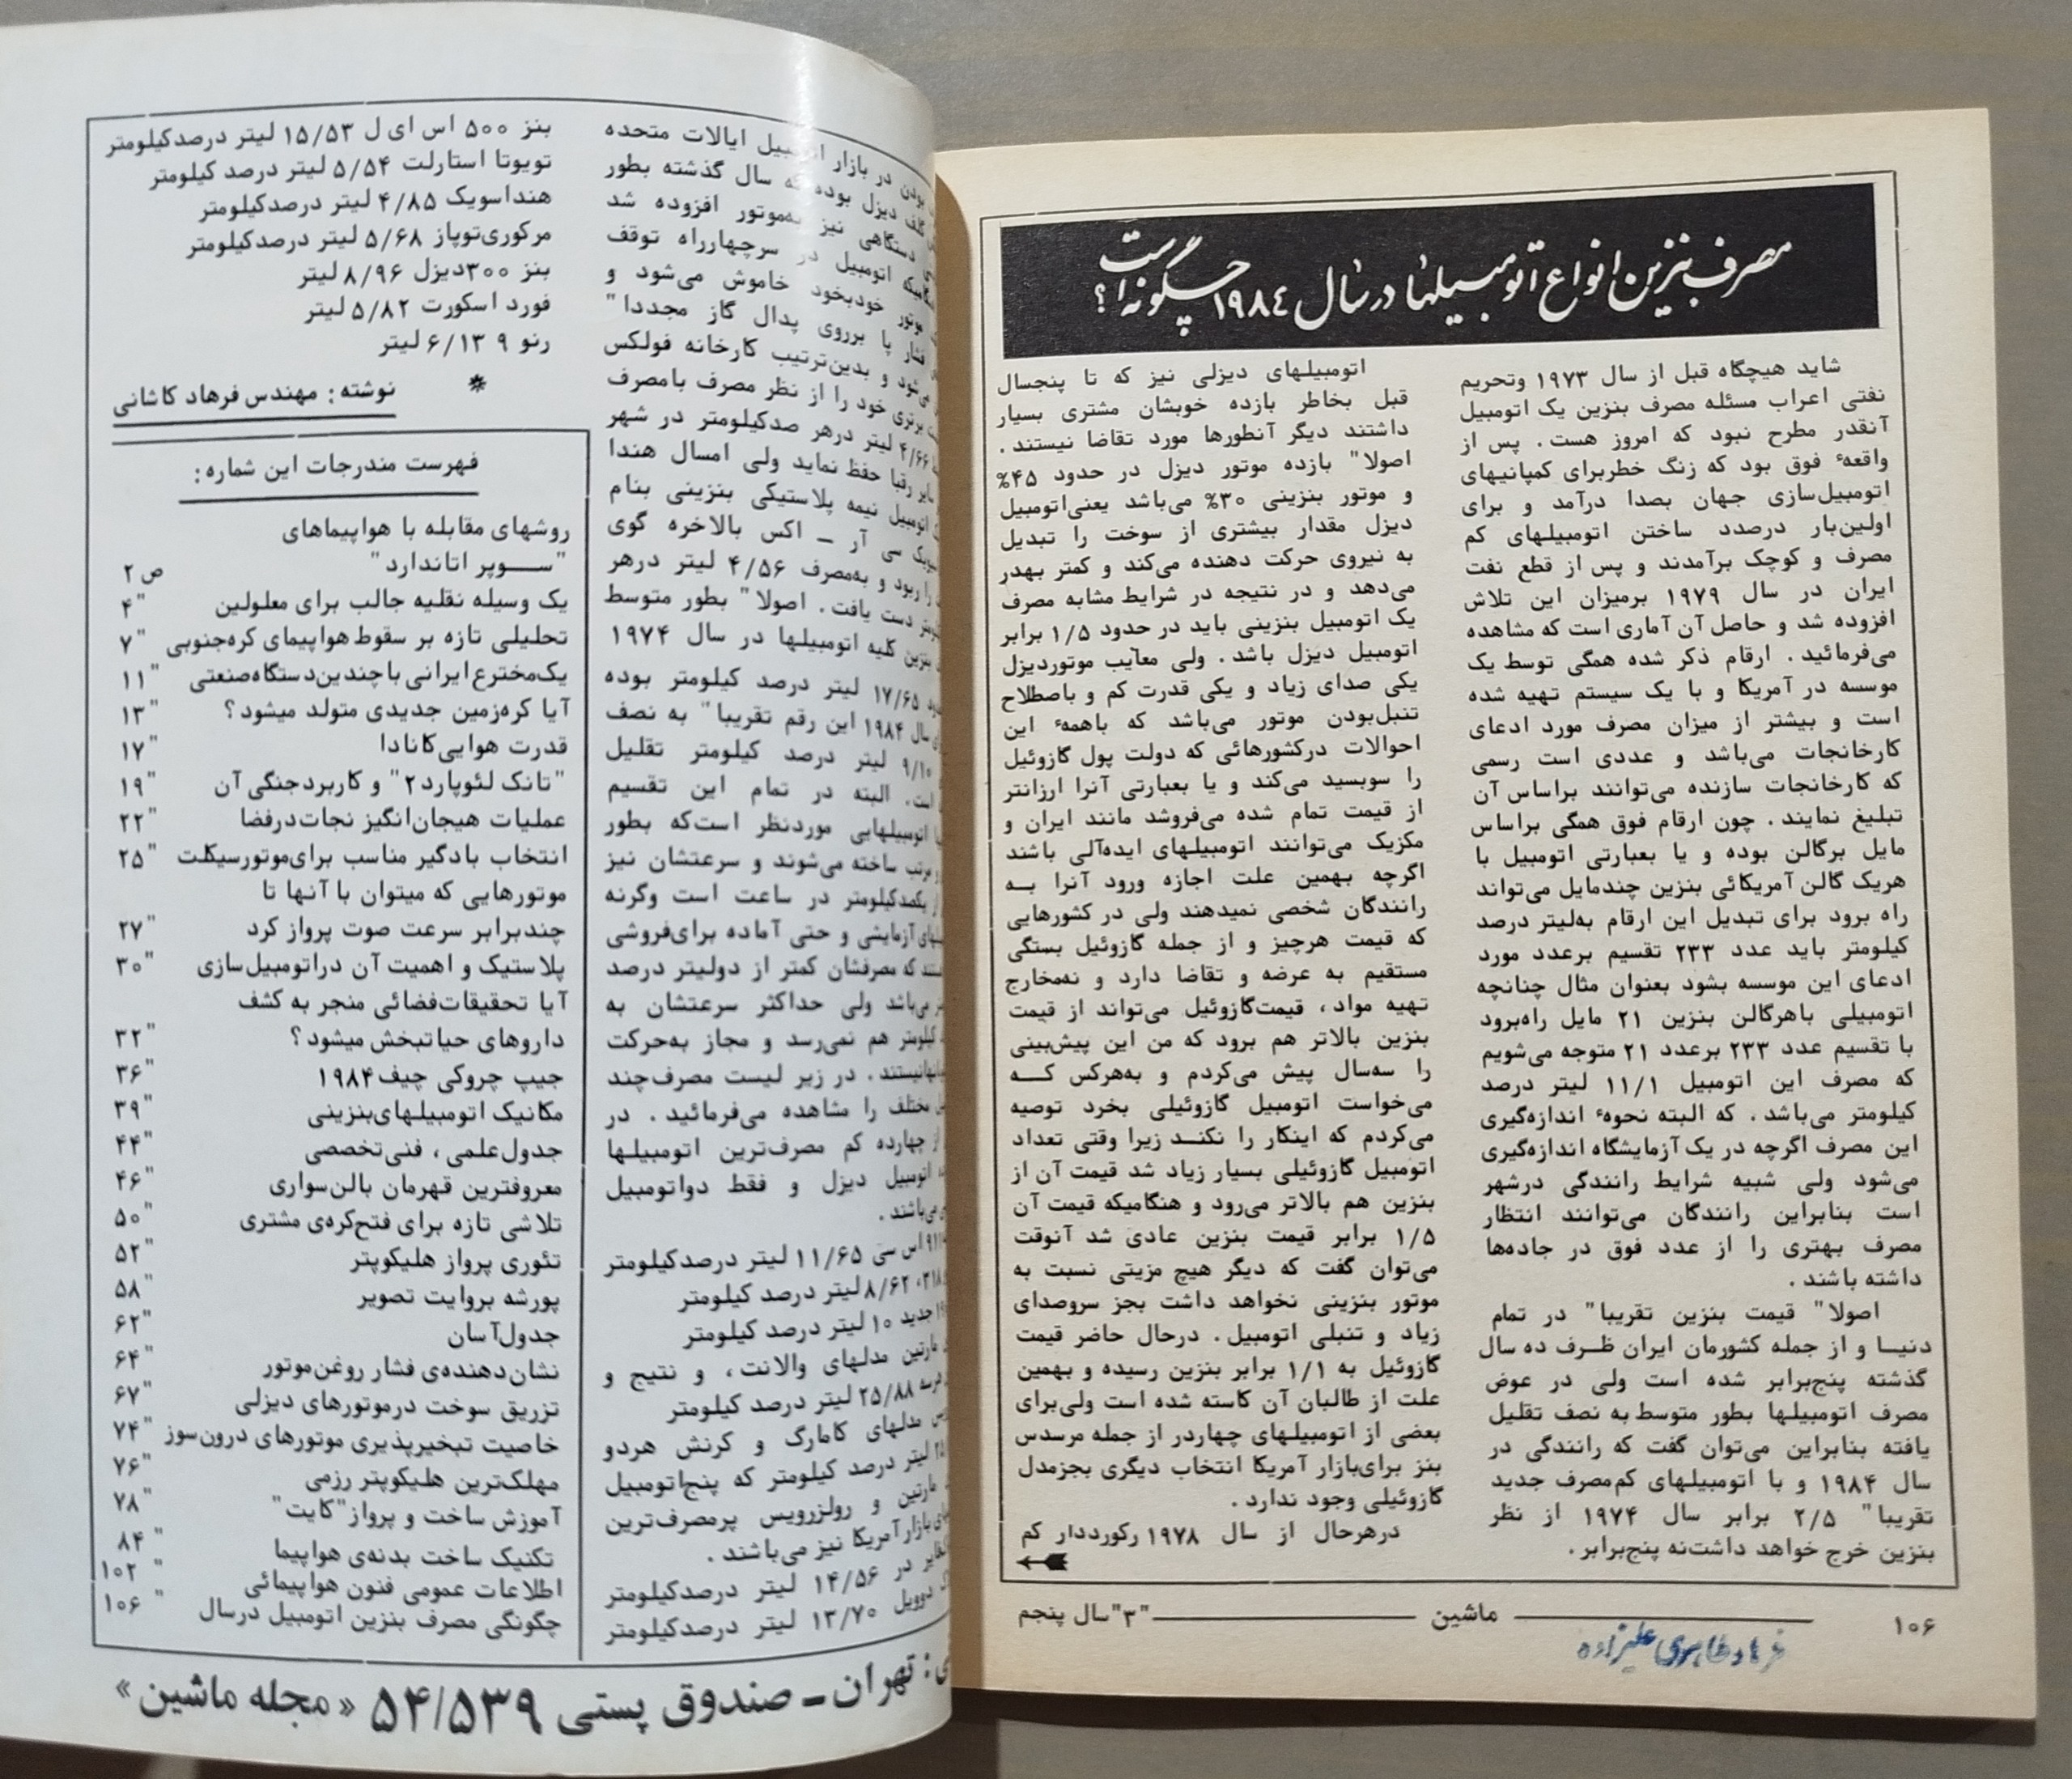 مصرف بنزین انواع اتومبیلها در سال ۱۹۸۴ چگونه است؟
شاید هیچگاه قبل از سال ۱۹۷۳ وتحریم
نفتی اعراب مسئله مصرف بنزین یک اتومبیل
آنقدر مطرح نبود که امروز هست. پس از
واقعهٔ فوق بود که زنگ خطربرای کمپانیهای
اتومبیل‌سازی جهان بصدا درآمد و برای
اولین‌بار درصدد ساختن اتومبیلهای کم
مصرف و کوچک برآمدند و پس از قطع نفت
ایران در سال ۱۹۷۹ برمیزان این تلاش
افزوده شد و حاصل آن آماری است که مشاهده
می‌فرمائید. ارقام ذکر شده همگی توسط یک
موسسه در آمریکا و با یک سیستم تهیه شده
است و بیشتر از میزان مصرف مورد ادعای
کارخانجات می‌باشد و عددی است رسمی
که کارخانجات سازنده می‌توانند براساس آن
تبلیغ نمایند. چون ارقام فوق همگی براساس
مایل برگالن بوده و یا بعبارتی اتومبیل با
هریک گالن آمریکائی بنزین چندمایل می‌تواند
راه برود برای تبدیل این ارقام به‌لیتر درصد
کیلومتر باید عدد ۲۳۳ تقسیم برعدد مورد
ادعای این موسسه بشود بعنوان مثال چنانچه
اتومبیلی باهرگالن بنزین ۲۱ مایل راه‌برود
با تقسیم عدد ۲۳۳ برعدد ۲۱ متوجه می‌شویم
که مصرف این اتومبیل ۱۱/۱ لیتر درصد
کیلومتر می‌باشد. که البته نحوهٔ اندازه‌گیری
این مصرف اگرچه در یک آزمایشگاه اندازه‌گیری
می‌شود ولی شبیه شرایط رانندگی درشهر
است بنابراین رانندگان می‌توانند انتظار
مصرف بهتری را از عدد فوق در جاده‌ها
داشته باشند.
اصولا" قیمت بنزین تقریبا" در تمام
دنیا و از جمله کشورمان ایران ظرف ده سال
گذشته پنج‌برابر شده است ولی در عوض
مصرف اتومبیلها بطور متوسط به نصف تقلیل
یافته بنابراین می‌توان گفت که رانندگی در
سال ۱۹۸۴ و با اتومبیلهای کم‌مصرف جدید
تقریبا" ۲/۵ برابر سال ۱۹۷۴ از نظر
بنزین خرج خواهد داشت‌نه پنج‌برابر.
اتومبیلهای دیزلی نیز که تا پنجسال
قبل بخاطر بازده خوبشان مشتری بسیار
داشتند دیگر آنطورها مورد تقاضا نیستند.
اصولا" بازده موتور دیزل در حدود ۴۵%
و موتور بنزینی ۳۰% می‌باشد یعنی‌اتومبیل
دیزل مقدار بیشتری از سوخت را تبدیل
به نیروی حرکت دهنده می‌کند و کمتر بهدر
می‌دهد و در نتیجه در شرایط مشابه مصرف
یک اتومبیل بنزینی باید در حدود ۱/۵ برابر
اتومبیل دیزل باشد. ولی معایب موتوردیزل
یکی صدای زیاد و یکی قدرت کم و باصطلاح
تنبل‌بودن موتور می‌باشد که باهمهٔ این
احوالات درکشورهائی که دولت پول گازوئیل
را سوبسید می‌کند و یا بعبارتی آنرا ارزانتر
از قیمت تمام شده می‌فروشد مانند ایران و
مکزیک می‌توانند اتومبیلهای ایده‌آلی باشند
اگرچه بهمین علت اجازه ورود آنرا به
رانندگان شخصی نمیدهند ولی در کشورهایی
که قیمت هرچیز و از جمله گازوئیل بستگی
مستقیم به عرضه و تقاضا دارد و نه‌مخارج
تهیه مواد، قیمت‌گازوئیل می‌تواند از قیمت
بنزین بالاتر هم برود که من این پیش‌بینی
را سه‌سال پیش می‌کردم و به‌هرکس که
می‌خواست اتومبیل گازوئیلی بخرد توصیه
می‌کردم که اینکار را نکند زیرا وقتی تعداد
اتومبیل گازوئیلی بسیار زیاد شد قیمت آن از
بنزین هم بالاتر می‌رود و هنگامیکه قیمت آن
۱/۵ برابر قیمت بنزین عادی شد آنوقت
می‌توان گفت که دیگر هیچ مزیتی نسبت به
موتور بنزینی نخواهد داشت بجز سروصدای
زیاد و تنبلی اتومبیل. درحال حاضر قیمت
گازوئیل به ۱/۱ برابر بنزین رسیده و بهمین
علت از طالبان آن کاسته شده است ولی‌برای
بعضی از اتومبیلهای چهاردر از جمله مرسدس
بنز برای‌بازار آمریکا انتخاب دیگری بجزمدل
گازوئیلی وجود ندارد.
درهرحال از سال ۱۹۷۸ رکورددار کم
۱۰۶ ماشین "۳"سال پنجم
فرهاد طاهری علیزاده
بودن در بازار اتومبیل ایالات متحده
گلف دیزل بوده که سال گذشته بطور
دستگاهی نیز به‌موتور افزوده شد
اتومبیل در سرچهارراه توقف
موتور خودبخود خاموش می‌شود و
فشار پا برروی پدال گاز مجددا"
می‌شود و بدین‌ترتیب کارخانه فولکس
برتری خود را از نظر مصرف بامصرف
۴/۶۶ لیتر درهر صدکیلومتر در شهر
سایر رقبا حفظ نماید ولی امسال هندا
اتومبیل نیمه پلاستیکی بنزینی بنام
سی آر ـ اکس بالاخره گوی
را ربود و به‌مصرف ۴/۵۶ لیتر درهر
دست یافت. اصولا" بطور متوسط
بنزین کلیه اتومبیلها در سال ۱۹۷۴
۱۷/۶۵ لیتر درصد کیلومتر بوده
سال ۱۹۸۴ این رقم تقریبا" به نصف
۹/۱۰ لیتر درصد کیلومتر تقلیل
است. البته در تمام این تقسیم
اتومبیلهایی موردنظر است‌که بطور
مرتب ساخته می‌شوند و سرعتشان نیز
یکصدکیلومتر در ساعت است وگرنه
آزمایشی و حتی آماده برای‌فروشی
که مصرفشان کمتر از دولیتر درصد
می‌باشد ولی حداکثر سرعتشان به
کیلومتر هم نمی‌رسد و مجاز به‌حرکت
در زیر لیست مصرف‌چند
مختلف را مشاهده می‌فرمائید. در
از چهارده کم مصرف‌ترین اتومبیلها
اتومبیل دیزل و فقط دواتومبیل
می‌باشند.
اس سی ۱۱/۶۵ لیتر درصدکیلومتر
۸/۶۲ لیتر درصد کیلومتر
جدید ۱۰ لیتر درصد کیلومتر
مارتین مدلهای والانت، و نتیج و
۲۵/۸۸ لیتر درصد کیلومتر
مدلهای کامارگ و کرنش هردو
لیتر درصد کیلومتر که پنج‌اتومبیل
مارتین و رولزرویس پرمصرف‌ترین
بازار آمریکا نیز می‌باشند.
در ۱۴/۵۶ لیتر درصدکیلومتر
دوویل ۱۳/۷۰ لیتر درصدکیلومتر
بنز ۵۰۰ اس ای ل ۱۵/۵۳ لیتر درصدکیلومتر
تویوتا استارلت ۵/۵۴ لیتر درصد کیلومتر
هنداسویک ۴/۸۵ لیتر درصدکیلومتر
مرکوری‌توپاز ۵/۶۸ لیتر درصدکیلومتر
بنز ۳۰۰دیزل ۸/۹۶ لیتر
فورد اسکورت ۵/۸۲ لیتر
رنو ۹ ۶/۱۳ لیتر
* نوشته: مهندس فرهاد کاشانی
فهرست مندرجات این شماره:
روشهای مقابله با هواپیماهای
"سوپر اتاندارد" ص ۲
یک وسیله نقلیه جالب برای معلولین " ۴
تحلیلی تازه بر سقوط هواپیمای کره‌جنوبی " ۷
یک‌مخترع ایرانی باچندین‌دستگاه‌صنعتی " ۱۱
آیا کره‌زمین جدیدی متولد میشود؟ " ۱۳
قدرت هوایی‌کانادا " ۱۷
"تانک لئوپارد۲" و کاربردجنگی آن " ۱۹
عملیات هیجان‌انگیز نجات‌درفضا " ۲۲
انتخاب بادگیر مناسب برای‌موتورسیکلت " ۲۵
موتورهایی که میتوان با آنها تا
چندبرابر سرعت صوت پرواز کرد " ۲۷
پلاستیک و اهمیت آن دراتومبیل‌سازی " ۳۰
آیا تحقیقات‌فضائی منجر به کشف
داروهای حیاتبخش میشود؟ " ۳۲
جیپ چروکی چیف۱۹۸۴ " ۳۶
مکانیک اتومبیلهای‌بنزینی " ۳۹
جدول‌علمی، فنی‌تخصصی " ۴۴
معروفترین قهرمان بالن‌سواری " ۴۶
تلاشی تازه برای فتح‌کره‌ی مشتری " ۵۰
تئوری پرواز هلیکوپتر " ۵۲
پورشه بروایت تصویر " ۵۸
جدول‌آسان " ۶۲
نشان‌دهنده‌ی فشار روغن‌موتور " ۶۴
تزریق سوخت درموتورهای دیزلی " ۶۷
خاصیت تبخیرپذیری موتورهای درون‌سوز " ۷۴
مهلک‌ترین هلیکوپتر رزمی " ۷۶
آموزش ساخت و پرواز"کایت" " ۷۸
تکنیک ساخت بدنه‌ی هواپیما " ۸۴
اطلاعات عمومی فنون هواپیمائی " ۱۰۲
چگونگی مصرف بنزین اتومبیل درسال " ۱۰۶
تهران ـ صندوق پستی ۵۴/۵۳۹ «مجله ماشین»